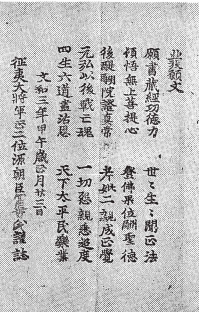 發願文
願書藏經功徳力 世々生々聞正法
頓悟無上菩提心 登佛果位酬聖徳
後醍醐院證真常 考妣二親成正覺
元弘以後戰亡魂 一切怨親悉超度
四生六道盡沾恩 天下太平民樂業
文和三年甲午歳正月廿三日
征夷大將軍正二位源朝臣尊氏謹誌